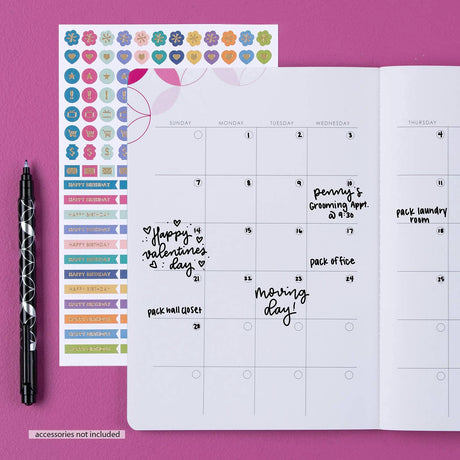 SUNDAY MONDAY TUESDAY WEDNESDAY THURSDAY
1 2 3 4
7 8 9 10 11
penny's
Grooming Appt.
@ 9:30
pack laundry
room
14 15 16 17 18
Happy
valentine's
day
pack office
21 22 23 24 25
pack hall closet
moving
day!
28
HAPPY BIRTHDAY
HAPPY BIRTHDAY
HAPPY BIRTHDAY
HAPPY BIRTHDAY
HAPPY BIRTHDAY
HAPPY BIRTHDAY
HAPPY BIRTHDAY
accessories not included